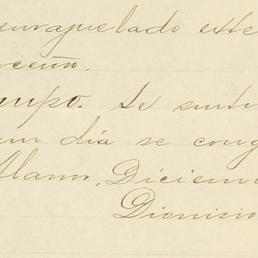 enrarpelado exte
ceña.
mpo. Se entu
un día se cong
Alamo, Diciem
Dionisio